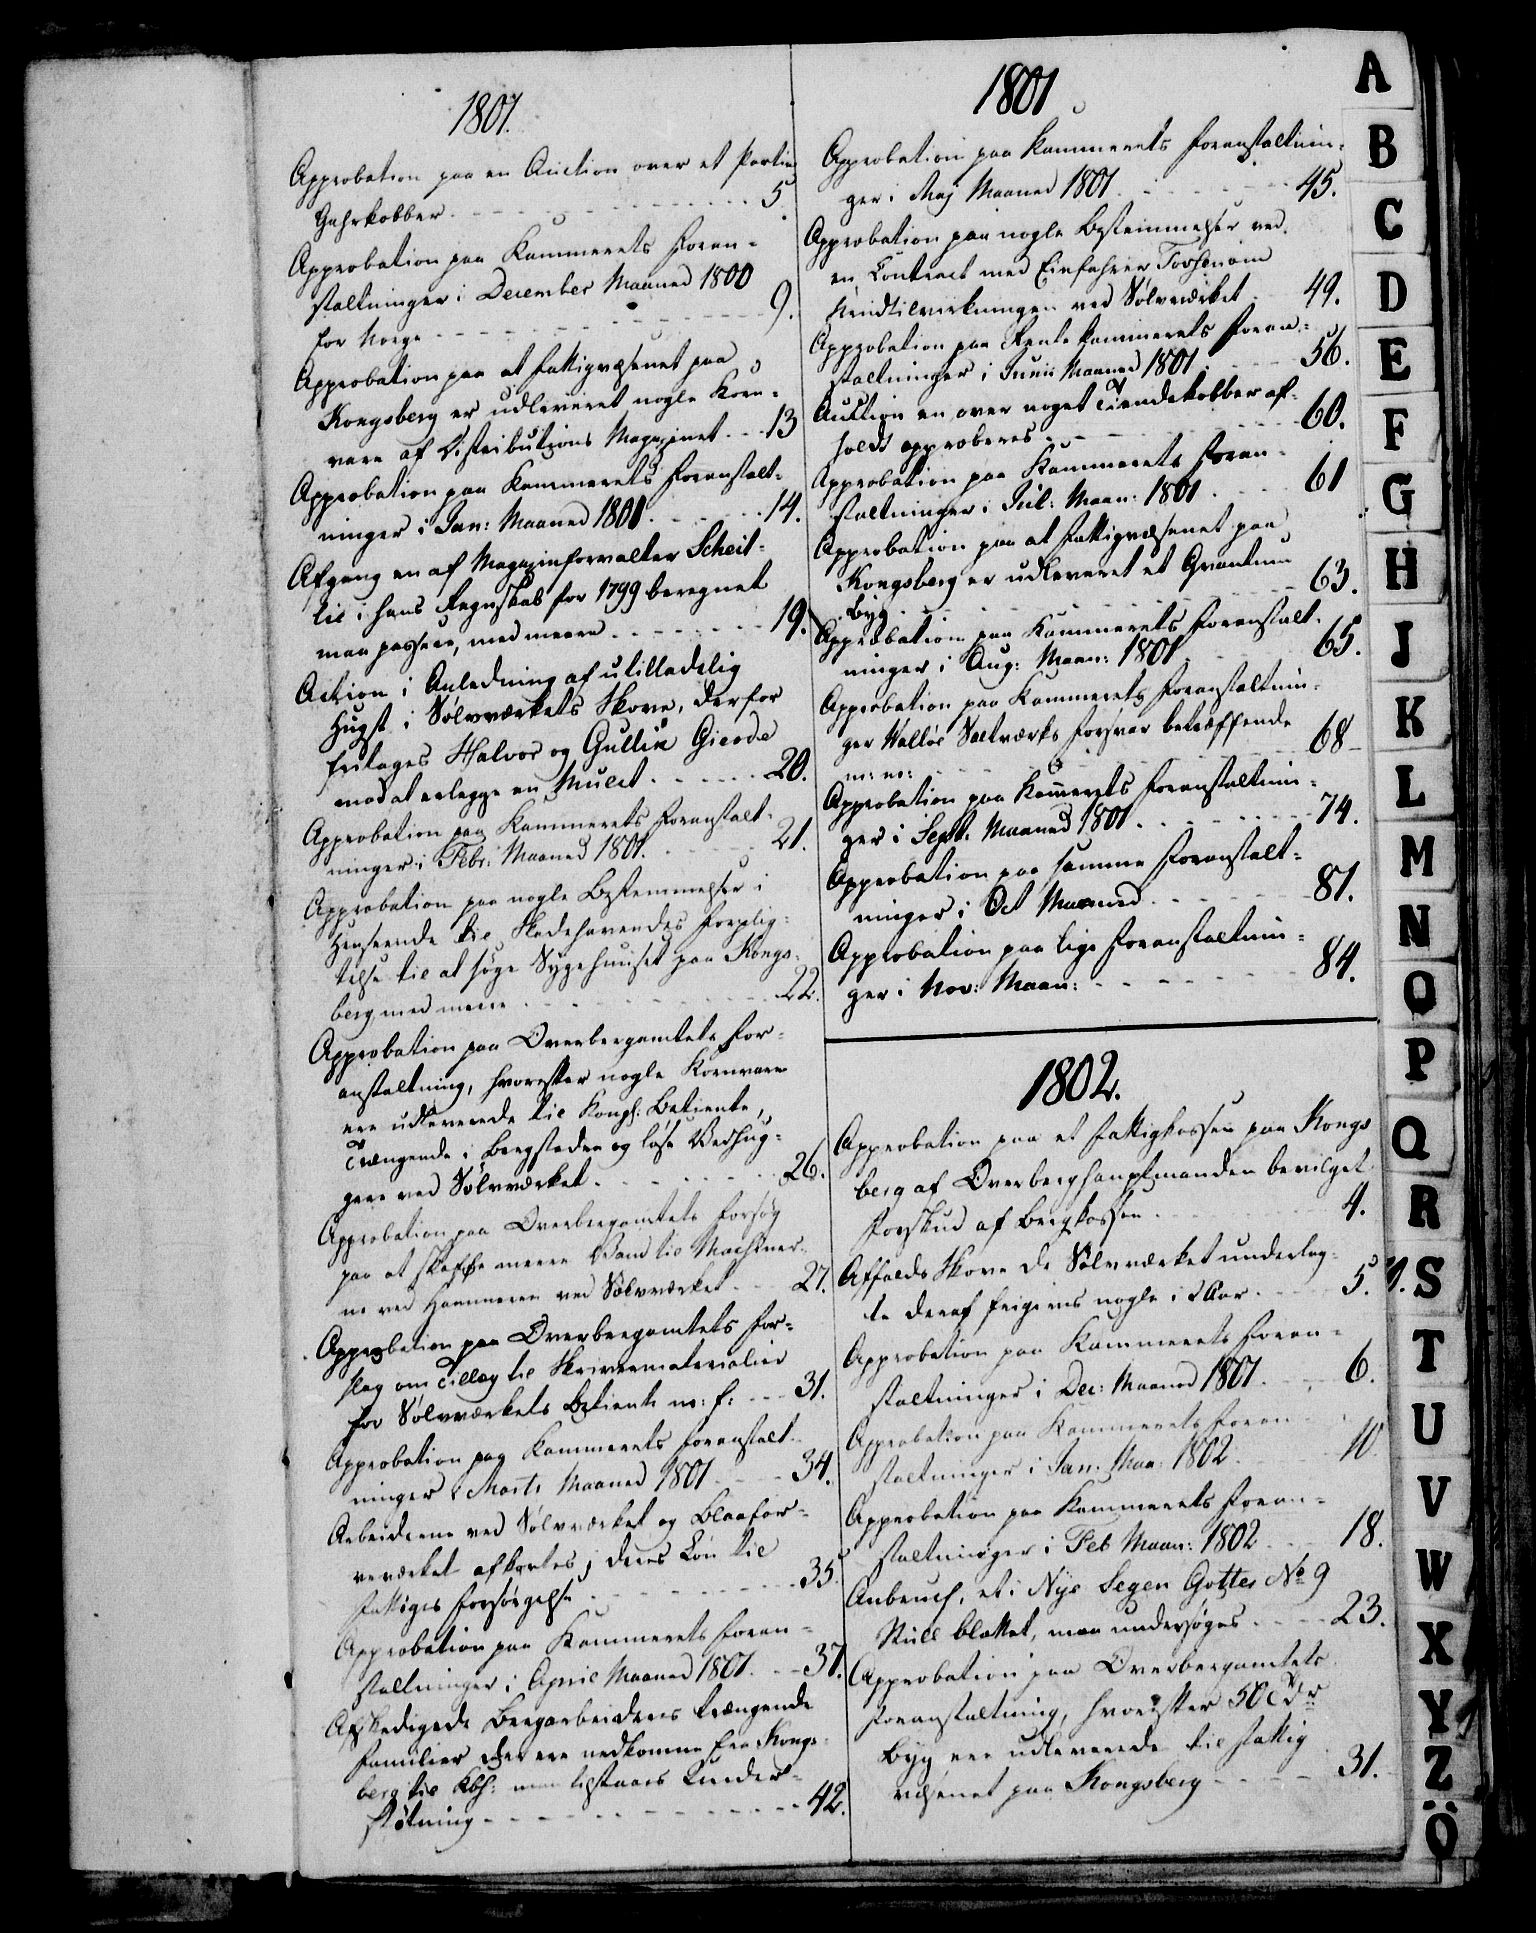 1801.
Approbation paa en Auction over et Partie
Gahrkobber 5.
Approbation paa Kammerets Foran-
staltninger i December Maaned 1800
for Norge 9.
Approbation paa at Fattigvæsenet paa
Kongsberg er udleveret nogle Korn-
vare af Distributions Magazinet 13
Approbation paa Kammerets Foranstalt-
ninger i Jan: Maaned 1801 14.
Afgang en af Magazinforvalter Scheit-
lie i hans Regnskab for 1799 beregnet
maa passere, med meere 19.
Action i Anledning af utilladelig
Hugst i Sølvværkets Skove, derfor
fritages Halvor og Gullik Gierde
mod at erlægge en Mulct 20.
Approbation paa Kammerets Foranstalt-
ninger i Febr: Maaned 1801. 21.
Approbation paa nogle Bestemmelser i
Henseende til Skadehavendes Forplig-
telse til at søge Sygehuuset paa Kongs-
berg med mere 22.
Approbation paa Overbergamtets For-
anstaltning, hvorefter nogle Kornvare
ere udleverede til Kongl: Betiente,
Trængende i Bergstaden og løse Vedhug-
gere ved Sølvværket 26.
Approbation paa Overbergamtets Forsøg
paa at skaffe meere Vand til Maskiner-
ne ved Hammeren ved Sølvværket 27.
Approbation paa Overbergamtets For-
slag om Tillæg til Skrivermaterialier
for Sølvværkets Betiente m: f: 31.
Approbation paa Kammerets Foranstalt-
ninger i Marts Maaned 1801 34.
Arbeiderne ved Sølvværket og Blaafar-
veværket afkortes i deres Løn til
Fattiges Forsørgelse 35
Approbation paa Kammerets Foran-
staltninger i April Maaned 1801. 37.
Afskedigede Bergarbeideres trængende
Familier der ere nedkomne fra Kongs-
berg til Kbh: maa tilstaaes Under-
støtning 42.
1801
Approbation paa Kammerets Foranstaltnin-
ger i Maj Maaned 1801 45.
Approbation paa nogle Bestemmelser ved
en Contract med Einfahrer
ved Sølvværket 49.
Approbation paa Rentekammerets Foran-
staltninger i Junii Maaned 1801 56.
Auction en over noget Tiendekobber af-
holdt approberes 60.
Approbation paa Kammerets Foran-
staltninger i Jul: Maan: 1801 61
Approbation paa at Fattigvæsenet paa
Kongsberg er udleveret et Qvantum
Byg 63.
Approbation paa Kammerets Foranstalt-
ninger i Aug: Maan: 1801 65.
Approbation paa Kammerets Foranstaltnin-
ger Walløe Saltværks Forsvar betræffende
m: m: 68
Approbation paa Kamerets Foranstaltnin-
ger i Sept: Maaned 1801 74.
Approbation paa samme Foranstalt-
ninger i Oct Maaned 81.
Approbation paa lige Foranstaltnin-
ger i Nov: Maan: 84.
1802.
Approbation paa et Fattigkassen paa Kongs
berg af Overberghauptmanden bevilget
Forskud af Bergkassen 4.
Affalds Skove de Sølvværket underlag-
te deraf frigives nogle i 2 Aar 5.
Approbation paa Kammerets Foran-
staltninger i Dec: Maaned 1801 6.
Approbation paa Kammerets Foran-
staltninger i Jan: Maa: 1802 10.
Approbation paa Kammerets Foran-
staltninger i Feb Maan: 1802 18.
Anbruch, et i Nye Segen Gottes No 9
Stull blottet, maa undersøges 23.
Approbation paa Overbergamtets
Foranstaltning, hvorefter 50 Tdr
Byg ere udleverede til Fattig
væsenet paa Kongsberg 31.
A
B
C
D
E
F
G
H
J
K
L
M
N
O
P
Q
R
S
T
U
V
W
X
Y
Z
Ö